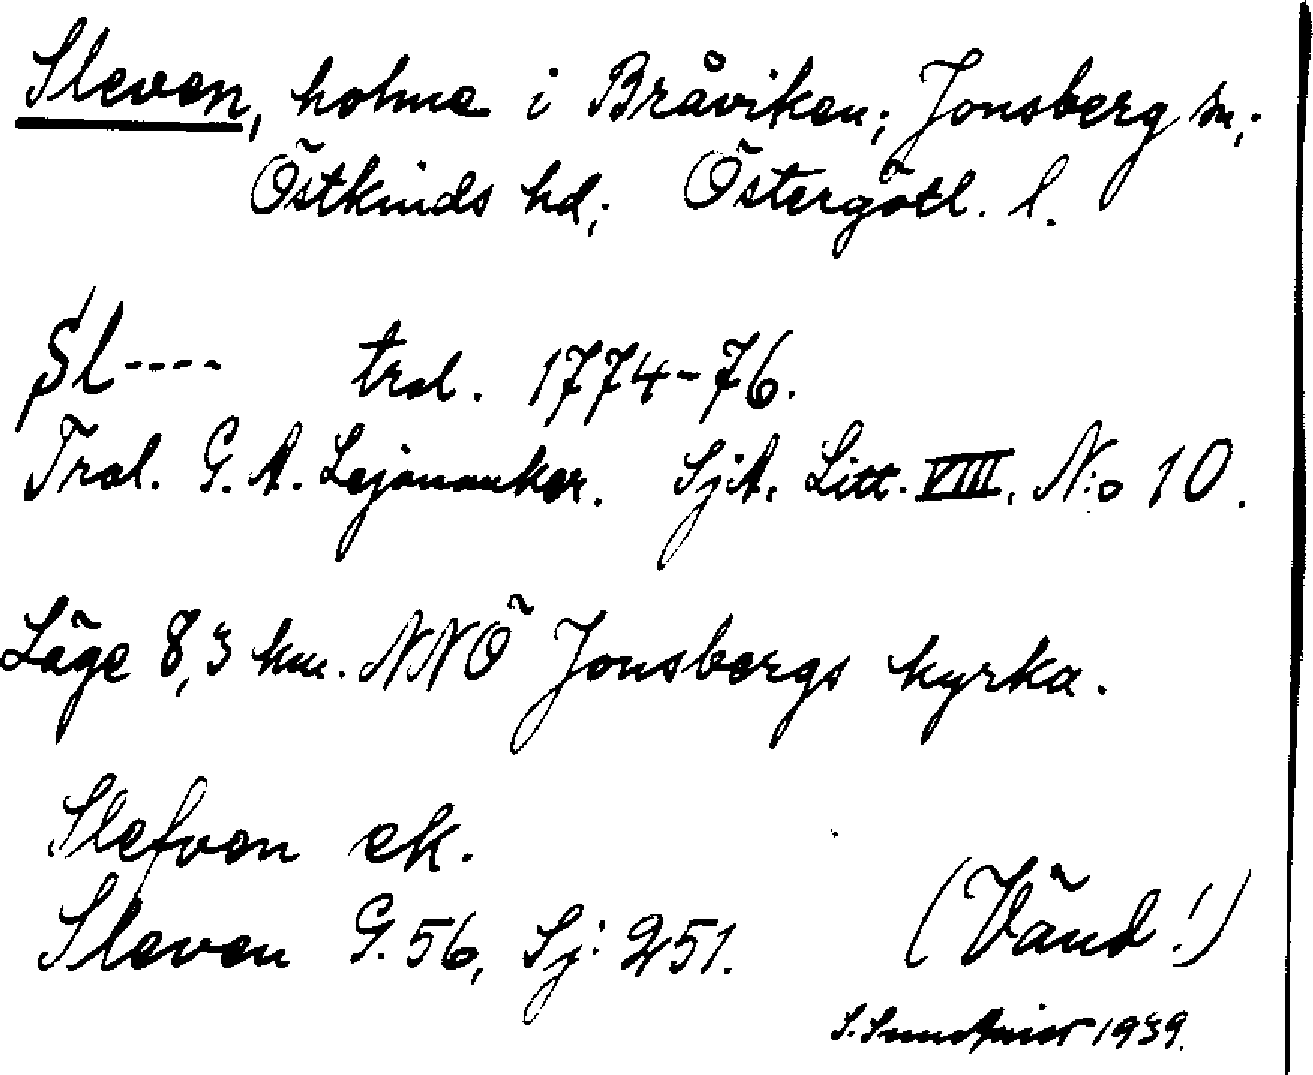 Sleven, holme i Bråviken; Jonsberg sn;
Östkinds hd; Östergötl. l.
Sl---- trol. 1774-76.
Trol. G. A. Lejonanker. SjA. Litt. VIII. N:o 10.
Läge 8,3 km. NNÖ Jonsbergs kyrka.
Slefven ek.
Sleven G. 56, Sj: 251.
(Vänd!)
S. 1939.